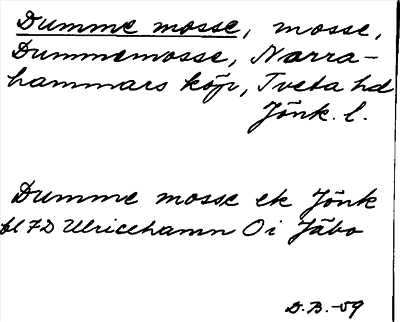 Dumme mosse, mosse,
Dummemosse, Norra-
hammars köp, Tveta hd
Jönk. l.
Dumme mosse ek Jönk
bl 7D Ulricehamn O i Jäbo
D.B.-59